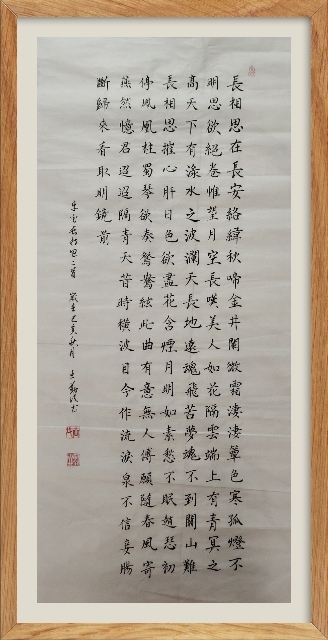 長相思在長安絡緯秋啼金井闌微霜淒淒簟色寒孤燈不
明思欲絕卷帷望月空長嘆美人如花隔雲端上有青冥之
高天下有淥水之波瀾天長地遠魂飛苦夢魂不到關山難
長相思摧心肝日色欲盡花含煙月明如素愁不眠趙瑟初
停鳳凰柱蜀琴欲奏鴛鴦絃此曲有意無人傳願隨春風寄
燕然憶君迢迢隔青天昔時橫波目今作流淚泉不信妾腸
斷歸來看取明鏡前
長相思二首 歲在己亥秋月 書